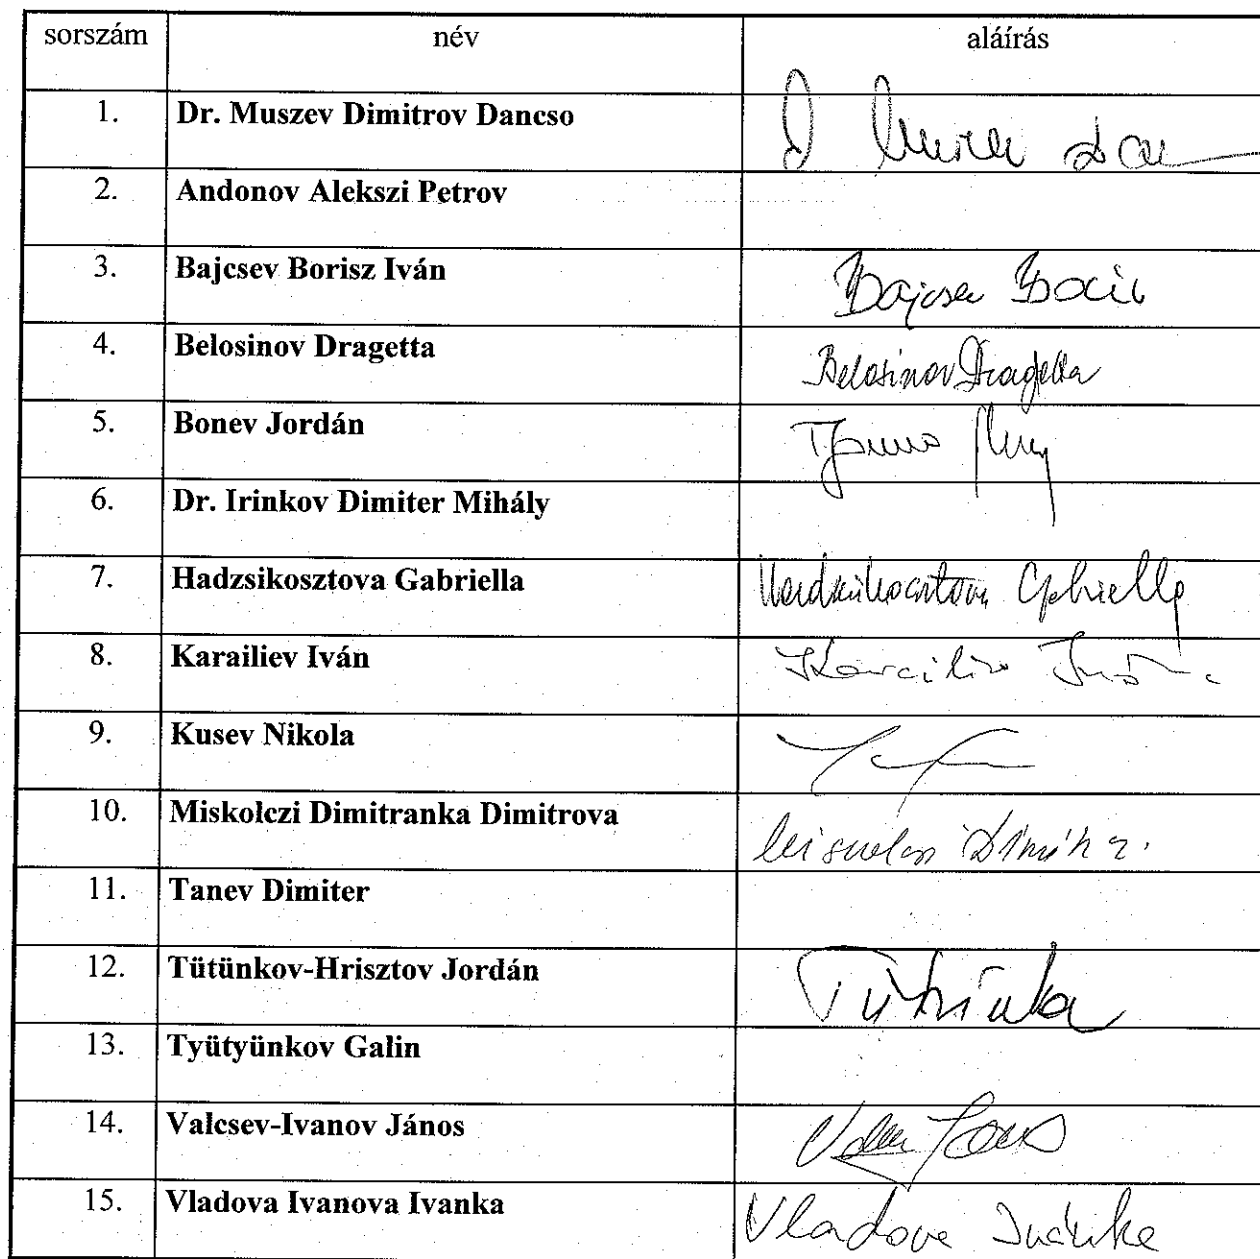 sorszám név aláírás
1. Dr. Muszev Dimitrov Dancso
2. Andonov Alekszi Petrov
3. Bajcsev Borisz Iván Bajcsev
4. Belosinov Dragetta Belosinov Dragetta
5. Bonev Jordán
6. Dr. Irinkov Dimiter Mihály
7. Hadzsikosztova Gabriella Gabriella
8. Karailiev Iván
9. Kusev Nikola
10. Miskolczi Dimitranka Dimitrova
11. Tanev Dimiter
12. Tütünkov-Hrisztov Jordán
13. Tyütyünkov Galin
14. Valcsev-Ivanov János
15. Vladova Ivanova Ivanka Vladova Ivánka